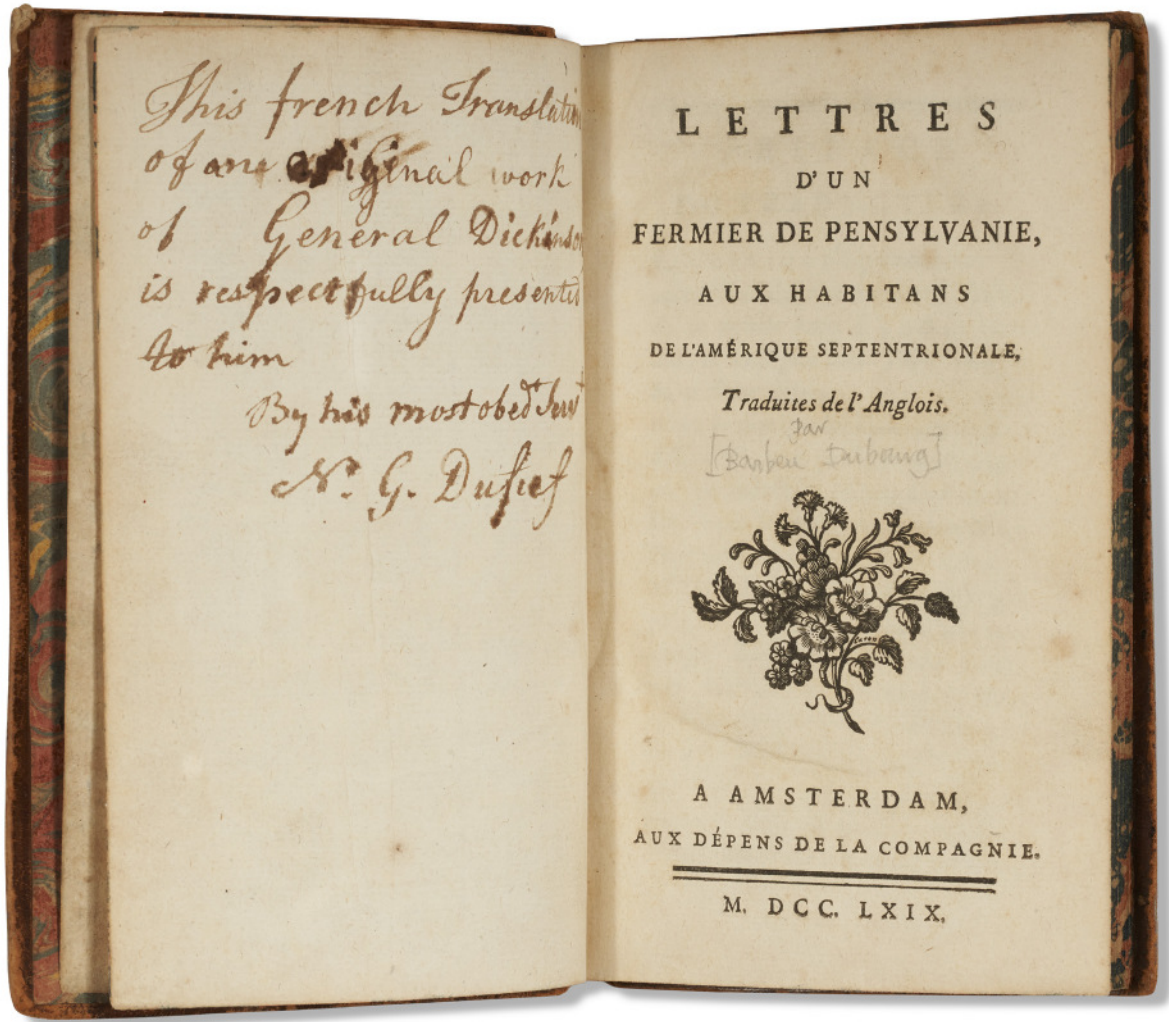 This french Translation
of an original work
of General Dickinson
is respectfully presented
to him
By his most obedt Servt
N. G. Dufief
LETTRES
D'UN
FERMIER DE PENSYLVANIE,
AUX HABITANS
DE L'AMÉRIQUE SEPTENTRIONALE,
Traduites de l'Anglois.
par
[Barbeu Dubourg]
A AMSTERDAM,
AUX DÉPENS DE LA COMPAGNIE.
M. DCC. LXIX.